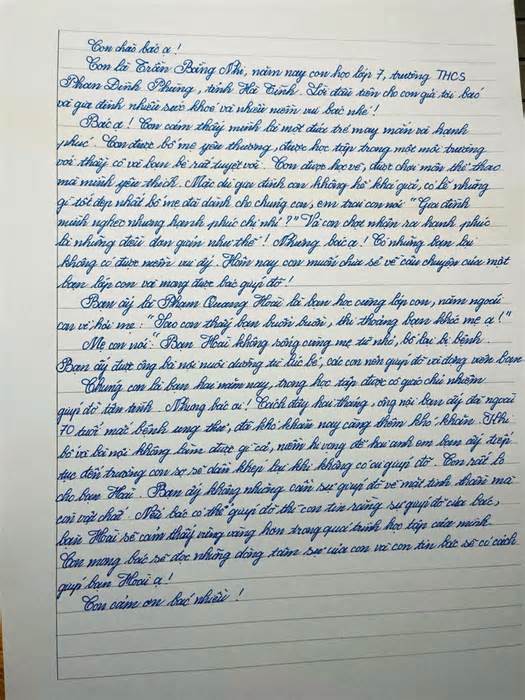 Con chào bác ạ!
Con là Trần Băng Nhi, năm nay con học lớp 7, trường THCS
Phan Đình Phùng, tỉnh Hà Tĩnh. Lời đầu tiên cho con gửi tới bác
và gia đình nhiều sức khoẻ và nhiều niềm vui bác nhé!
Bác ạ! Con cảm thấy mình là một đứa trẻ may mắn và hạnh
phúc. Con được bố mẹ yêu thương, được học tập trong một môi trường
với thầy cô và bạn bè rất tuyệt vời. Con được học vẽ, được chơi môn thể thao
mà mình yêu thích. Mặc dù gia đình con không hề khá giả, có lẽ những
gì tốt đẹp nhất bố mẹ đã dành cho chúng con, em trai con nói "Gia đình
mình nghèo nhưng hạnh phúc chị nhỉ?" Và con chợt nhận ra hạnh phúc
là những điều đơn giản như thế! Nhưng bác ạ! Có những bạn lại
không có được niềm vui ấy. Hôm nay con muốn chia sẻ về câu chuyện của một
bạn lớp con và mong được bác giúp đỡ!
Bạn ấy là Phạm Quang Hoài là bạn học cùng lớp con, năm ngoái
con về hỏi mẹ: "Sao con thấy bạn buồn buồn, thi thoảng bạn khóc mẹ ạ!"
Mẹ con nói: Bạn Hoài không sống cùng mẹ từ nhỏ, bố lại bị bệnh.
Bạn ấy được ông bà nội nuôi dưỡng từ lúc bé, các con nên giúp đỡ và động viên bạn.
Chúng con là bạn hai năm nay, trong học tập được cô giáo chủ nhiệm
giúp đỡ tận tình. Nhưng bác ạ! Cách đây hai tháng, ông nội bạn ấy đã ngoài
70 tuổi mắc bệnh ung thư, đã khó khăn nay càng thêm khó khăn. Khi
bố và bà nội không làm được gì cả, niềm hi vọng để hai anh em bạn ấy tiếp
tục đến trường con sợ sẽ dần khép lại khi không có ai giúp đỡ. Con rất lo
cho bạn Hoài. Bạn ấy không những cần sự giúp đỡ về mặt tinh thần mà
còn vật chất. Nếu bác có thể giúp đỡ thì con tin rằng sự giúp đỡ của bác,
bạn Hoài sẽ cảm thấy vững vàng hơn trong quá trình học tập của mình.
Con mong bác sẽ đọc những dòng tâm sự của con và con tin bác sẽ có cách
giúp bạn Hoài ạ!
Con cảm ơn bác nhiều!